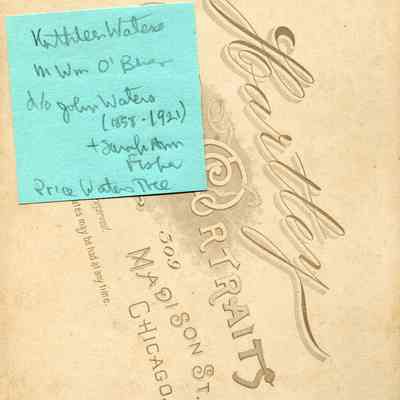 Kathleen Waters
m Wm O'Brien
d/o John Waters
(1858-1921)
+ Sarah Ann
Fisher
Price Waters Tree
Hartley
PORTRAITS
309
MADISON ST.
CHICAGO.
may be had at any time.